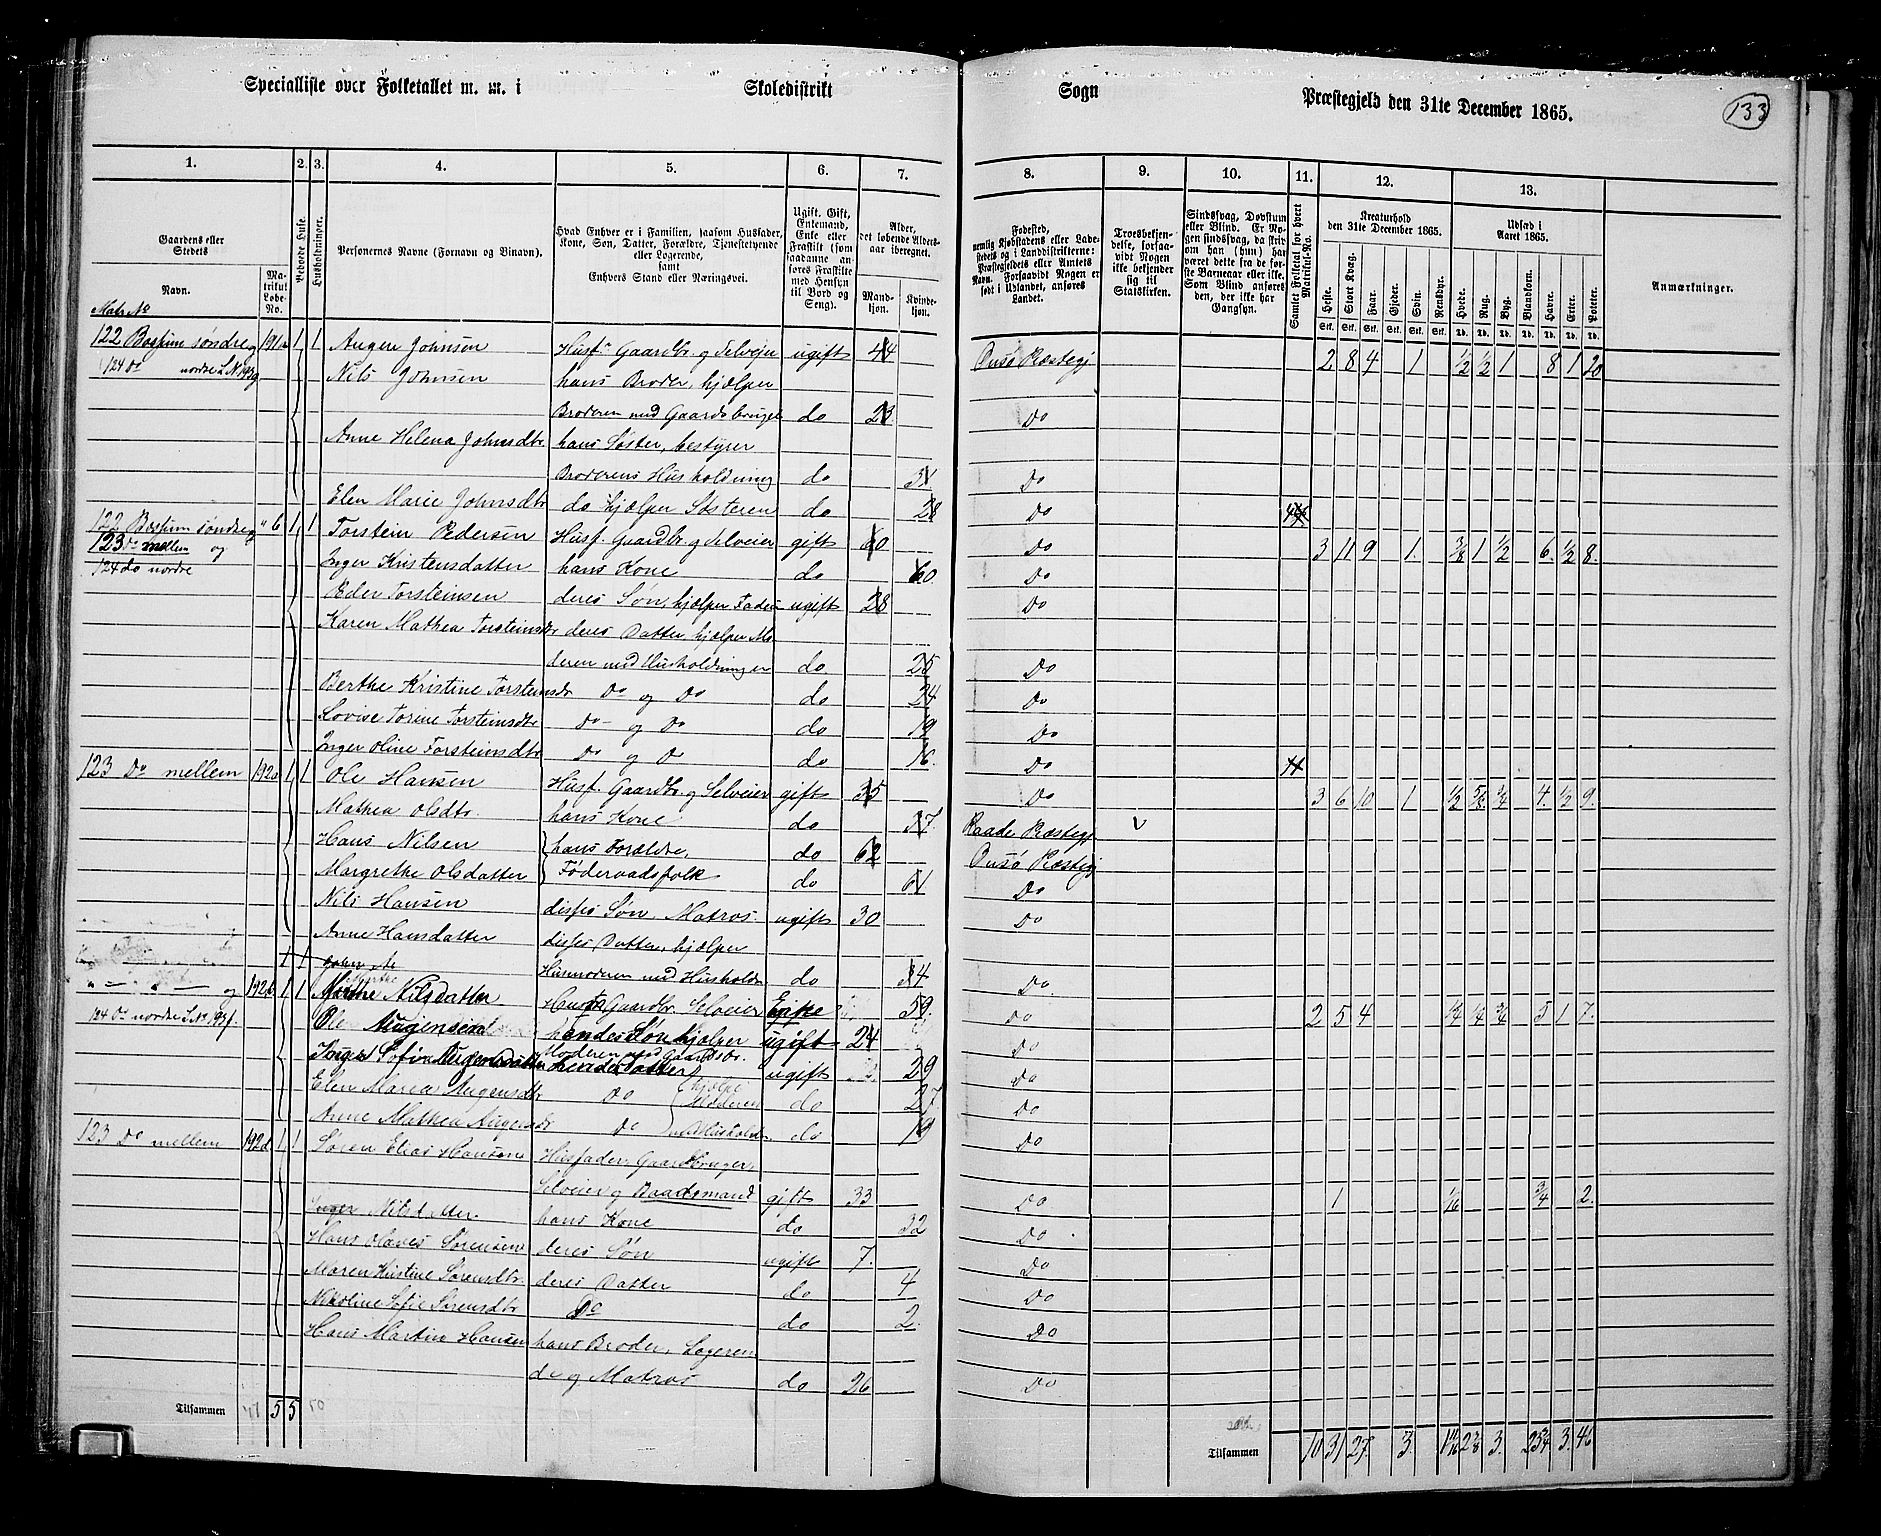 Specialliste over Folketallet m. m. i Skoledistrikt Sogn Præstegjeld den 31te December 1865. 133
1. 2. 3. 4. 5. 6. 7. 8. 9. 10. 11. 12. 13.
Gaardens eller Stedets
Navn.
Matrikul Løbe-No.
Matr No
Beboede Huse.
Husholdninger.
Personernes Navne (Fornavn og Binavn).
Hvad Enhver er i Familien, saasom Husfader, Kone, Søn, Datter, Forældre, Tjenestetyende eller Logerende, samt Enhvers Stand eller Næringsvei.
Ugift, Gift, Enkemand, Enke eller Fraskilt (som saadanne anføres Fraskilte med Hensyn til Bord og Seng).
Alder, det løbende Aldersaar iberegnet.
Mandkjøn. Kvindekjøn.
Fødested, nemlig Kjøbstadens eller Ladestedets og i Landdistrikterne: Præstegjeldets eller Amtets Navn. Forsaavidt Nogen er født i Udlandet, anføres Landet.
Troesbekjendelse, forsaavidt Nogen ikke bekjender sig til Statskirken.
Sindssvag, Døvstum eller Blind. Er Nogen sindssvag, da skriv om han (hun) har været dette fra de første Barneaar eller ikke. Som Blind anføres den, der ikke har Gangsyn.
Samlet Folketal for hvert Matrikul-No.
Kreaturhold den 31te December 1865.
Heste. Stort Kvæg. Faar. Gjeder. Svin. Rensdyr.
Udsæd i Aaret 1865.
Hvede. Rug. Byg. Blandkorn. Havre. Erter. Poteter.
Anmærkninger.
122 Bostum søndre og 191a 1 1 Augen Johnsen Husf. Gaardbr. og Selveier ugift 44 Onsø Præstegj 2 8 4 1 1/2 1/2 1 8 1 20
124 do nordre L N 193g Nils Johnsen hans Broder, hjælper
Broderen med Gaardsbruget do 23 Do
Anne Helena Johnsdtr. hans Søster, bestyrer
Broderens Husholdning do 31 Do
Elen Marie Johnsdtr do hjælper Søsteren do 28 Do
122 Bostum søndre " 6 1 1 Torstein Pedersen Husf. Gaardbr. og Selveier gift 60 Do 3 11 9 1. 3/8 1 1/2 6. 1/2 8.
123 do mellem og
124 do nordre Inger Kristensdatter hans Kone do 60. Do
Peder Torsteinsen deres Søn, hjælper Faderen ugift 28 Do
Karen Mathea Torsteinsdtr deres Datter, hjælper Mo
deren med Husholdningen do 25 Do
Berthe Kristine Torsteinsdtr Do og Do do 24 Do
Lovise Torine Torsteinsdtr Do - og Do do 19 Do
Inger Oline Torsteinsdtr Do og Do do 16. Do
123 Do mellem 192a 1 1 Ole Hansen Husf. Gaardbr. og Selveier gift 35 Do 3 6 10 1 1/2 5/8 3/4 4. 1/2 9.
Mathea Olsdtr. hans Kone do 37. Raade Præstegj
Hans Nilsen hans Forældre, do 62 Onsø Præstegj
Margrethe Olsdatter Føderaadsfolk do 61 Do
Nils Hansen disses Søn, Matros ugift 30 Do
Anne Hansdatter disses Datter, hjælper
Husmoderen med Husholdn do 34 Do
" — " — og 192b 1 1 Marthe Nilsdatter Gaardbr. Selveier Enke 59. Do 2 5 4 3/4 5 1 7.
124 Do nordre L No 193f. Ole Augensen hendes Søn hjælper ugift 24 Do
Moderen med Gaardsbr.
Inger Sofie Augensdatter hendes Datter ugift 29 Do
Elen Maria Augensdtr Do hjælpe Moderen do 27 Do
Anne Mathea Augensdr Do m Husholdn. do 19 Do
123 Do mellem 192d 1 1 Søren Elias Hansen Husfader, Gaardbruger,
Selveier og Baadsmand gift 33 Do 1 1/16 3/4 2.
Inger Nilsdatter hans Kone do 32 Do
Hans Olaves Sørensen deres Søn ugift 7. Do
Maren Kristine Sørensdtr. deres Datter do 4 Do
Nikoline Sofie Sørensdtr Do do 2. Do
Hans Martin Hansen hans Broder, Logeren
de og Matros do 26 Do
Tilsammen 5 5 Tilsammen 10 31 27. 3. 3. 3. 46